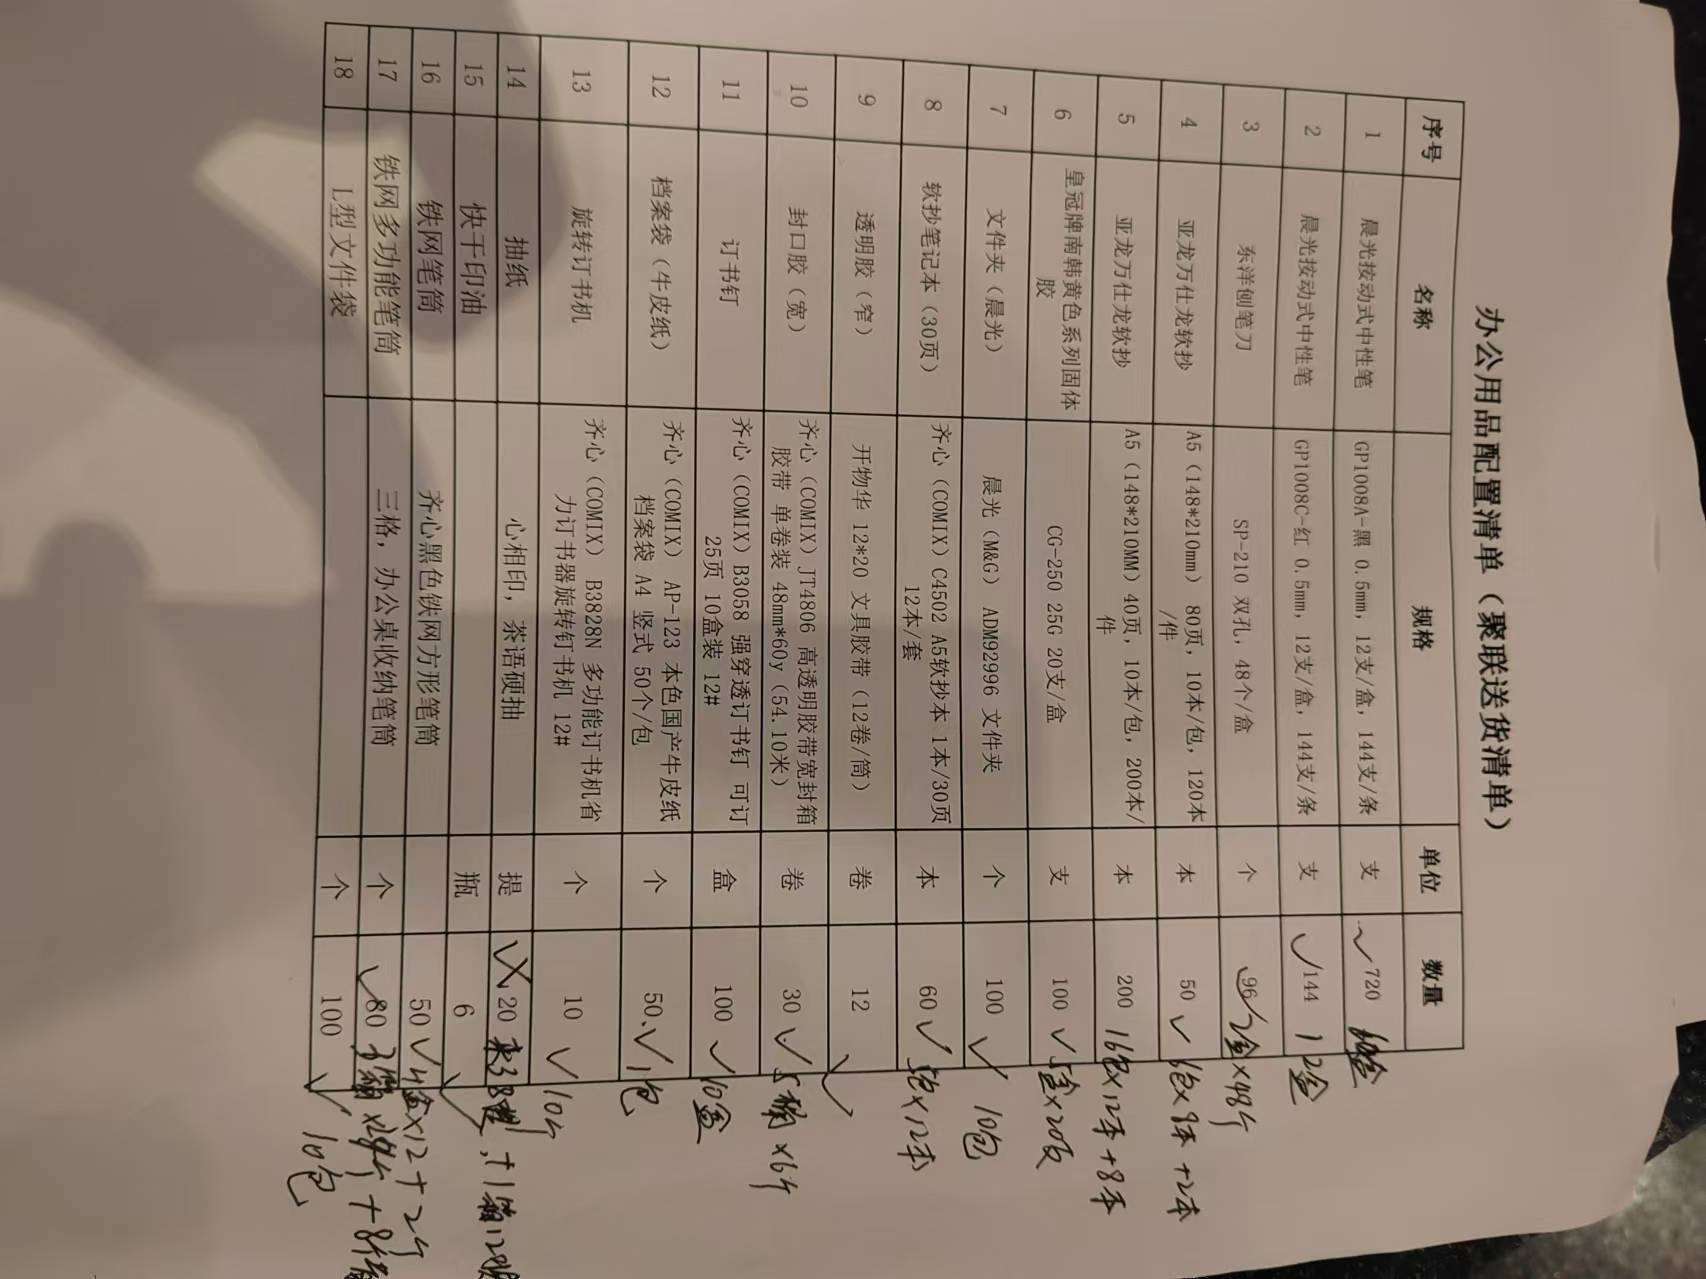 办公用品配置清单（聚联送货清单）
序号 名称 规格 单位 数量
1 晨光按动式中性笔 GP1008A-黑 0.5mm，12支/盒，144支/条 支 720
2 晨光按动式中性笔 GP1008C-红 0.5mm，12支/盒，144支/条 支 144 12盒
3 东洋刨笔刀 SP-210 双孔，48个/盒 个 96 2盒×48个
4 亚龙万仕龙软抄 A5（148*210mm） 80页，10本/包，120本
/件 本 50 6包×8本+2本
5 亚龙万仕龙软抄 A5（148*210MM）40页，10本/包，200本/
件 本 200 16包×12本+8本
6 皇冠牌南韩黄色系列固体
胶 CG-250 25G 20支/盒 支 100 5盒×20支
7 文件夹（晨光） 晨光（M&G） ADM92996 文件夹 个 100 10包
8 软抄笔记本（30页） 齐心（COMIX）C4502 A5软抄本 1本/30页
12本/套 本 60 5包×12本
9 透明胶（窄） 开物华 12*20 文具胶带（12卷/筒） 卷 12
10 封口胶（宽） 齐心（COMIX）JT4806 高透明胶带宽封箱
胶带 单卷装 48mm*60y（54.10米） 卷 30 5 ×6个
11 订书钉 齐心（COMIX）B3058 强穿透订书钉 可订
25页 10盒装 12# 盒 100 10盒
12 档案袋（牛皮纸） 齐心（COMIX） AP-123 本色国产牛皮纸
档案袋 A4 竖式 50个/包 个 50 1包
13 旋转订书机 齐心（COMIX） B3828N 多功能订书机省
力订书器旋转钉书机 12# 个 10 10个
14 抽纸 心相印，茶语硬抽 提 20
15 快干印油 瓶 6
16 铁网笔筒 齐心黑色铁网方形笔筒 50 4盒×12+2个
17 铁网多功能笔筒 三格，办公桌收纳笔筒 个 80 3箱
18 L型文件袋 个 100 10包